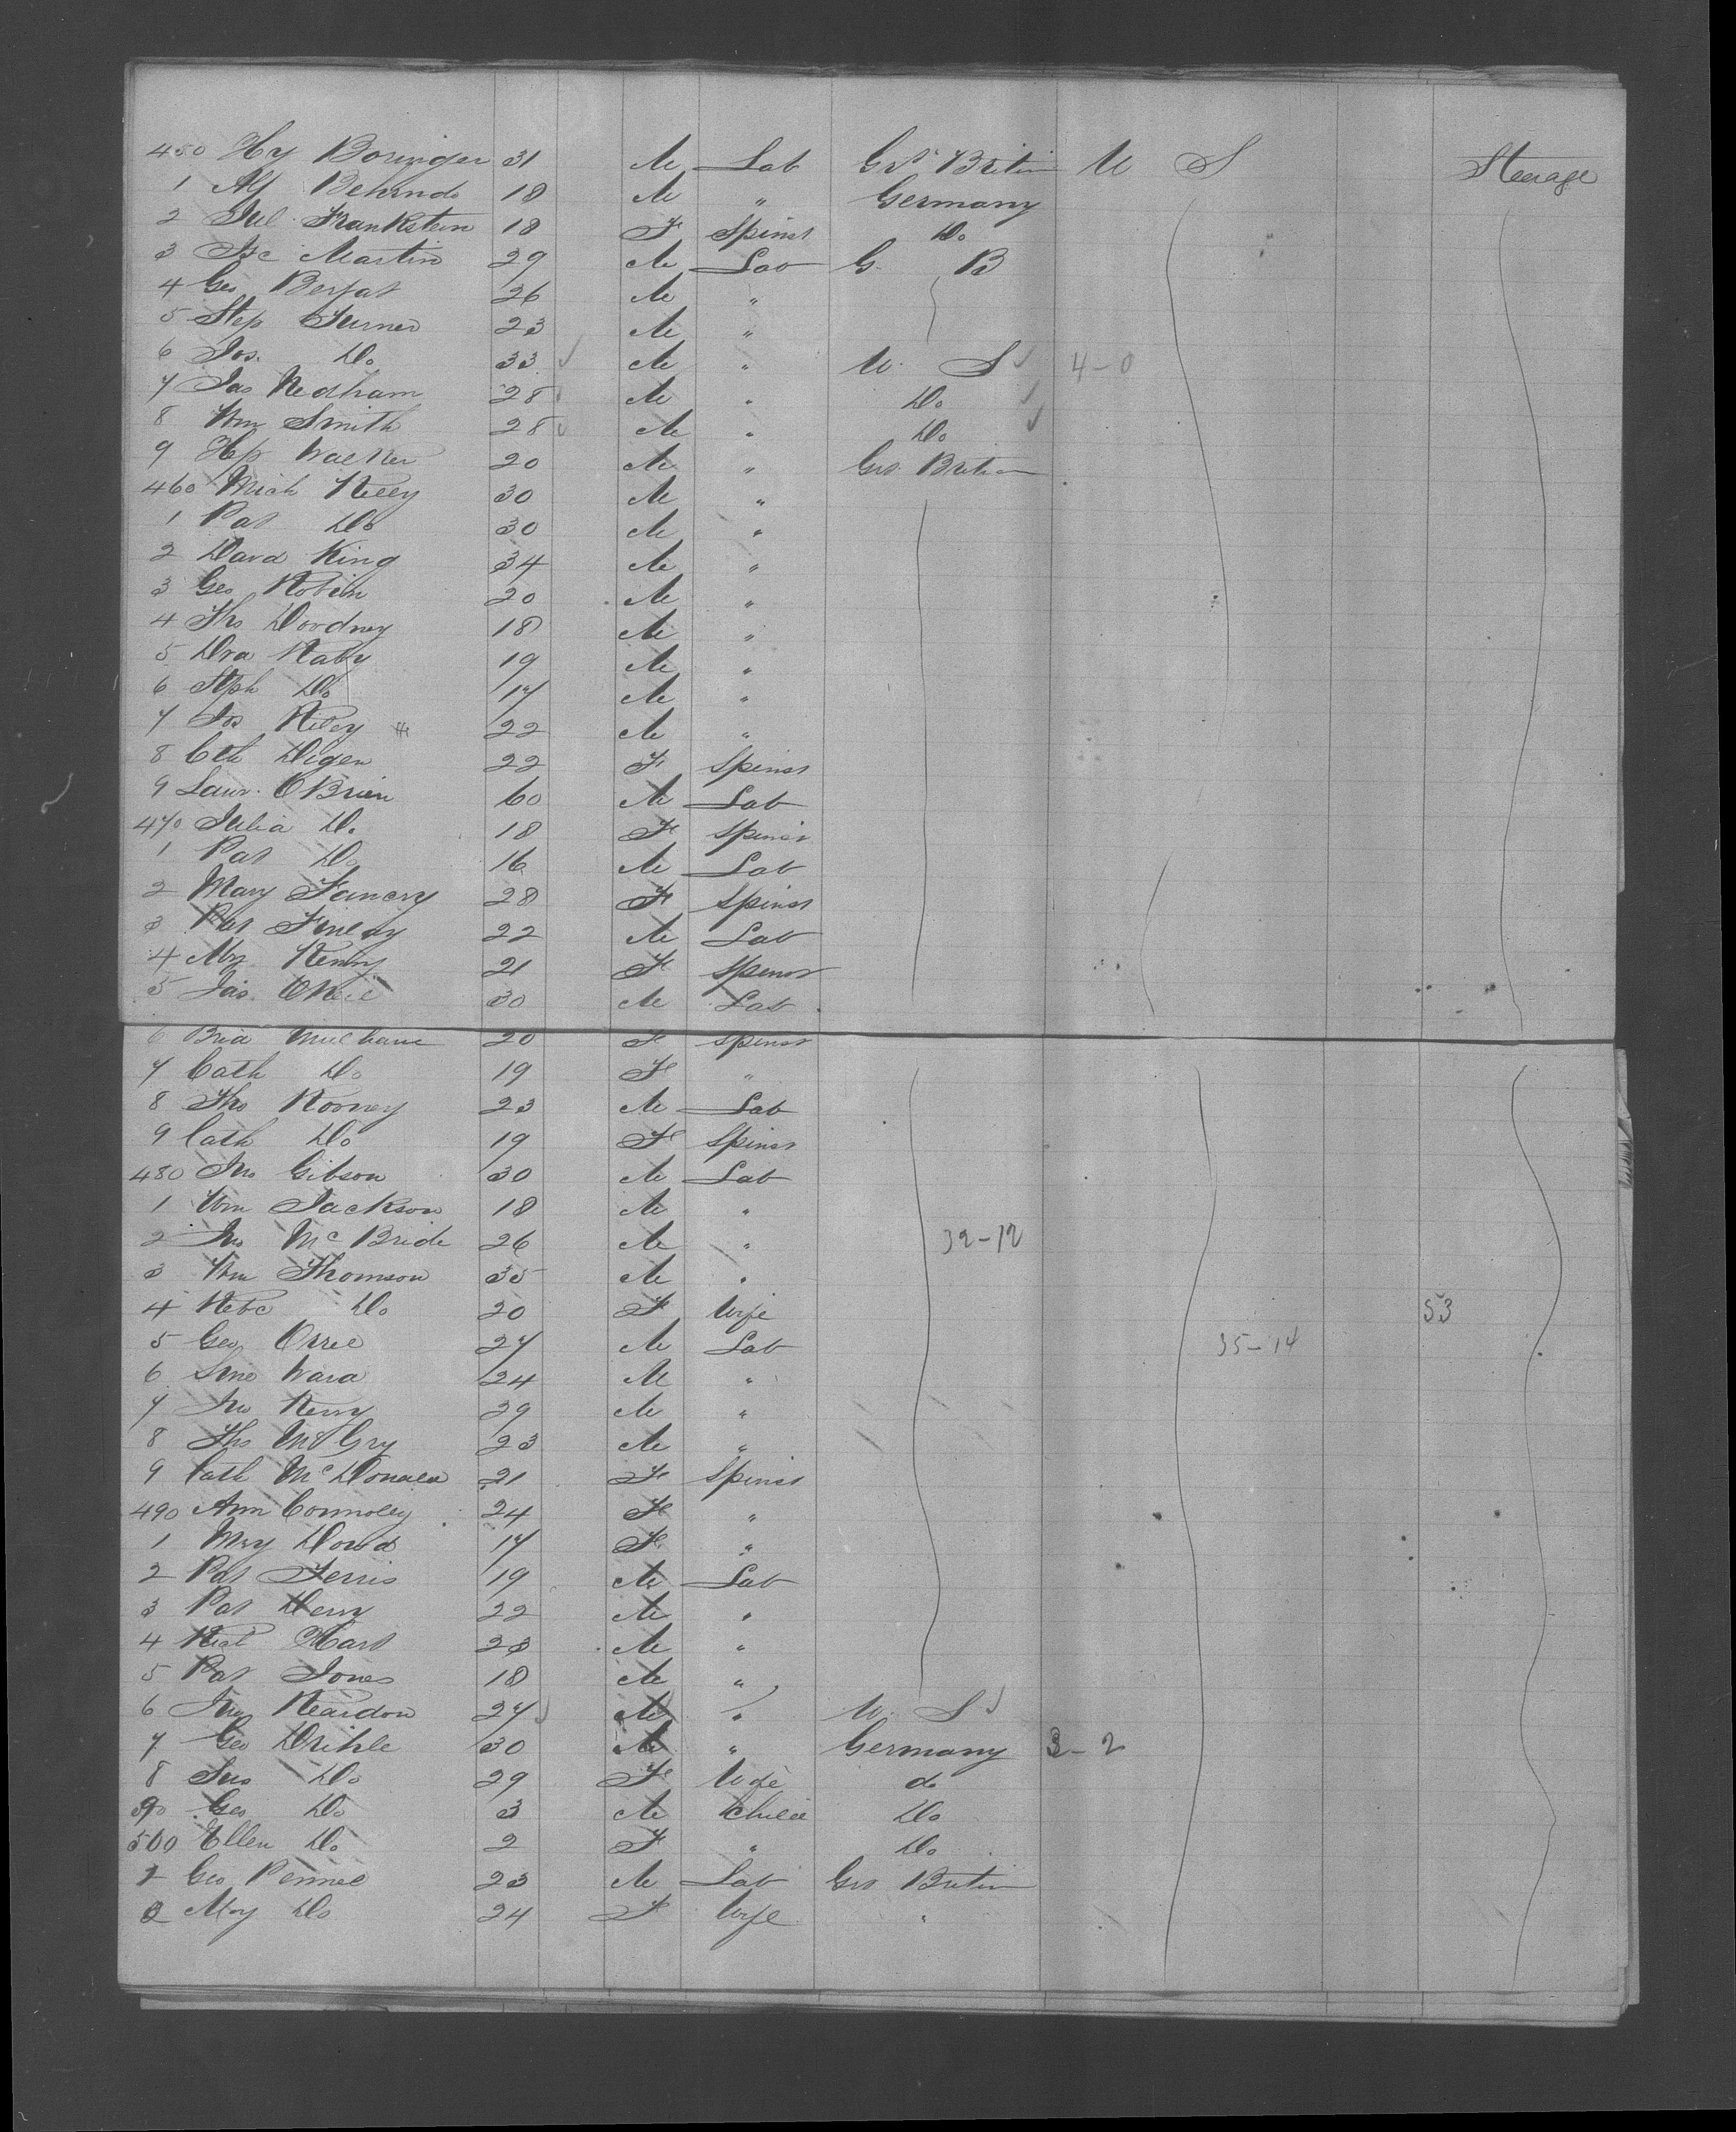 450 Hy Boringer 31 M Lab Grt Britin U S Steerage
1 Alf Behrnds 18 M " Germany
2 Jul Frankstein 18 F Spinst Do
3 Isc Martin 29 M Lab G B
4 Geo 26 M "
5 Step Turner 23 M "
6 Jos. Do 33 M " U. S 4-0
7 Jas Nedham 28 M " Do
8 Wm Smith 28 M " Do
9 Walker 20 M " Grt Britin
460 Mich Kelly 30 M "
1 Pat Do 30 M "
2 Davd King 34 M "
3 Geo Robin 20 M "
4 Ths Doodney 18 M "
5 Dva 19 M "
6 Stph Do 17 M "
7 Jos Riley 22 M "
8 Cth Digen 22 F Spinst
9 Lawr. OBrien 60 M Lab
470 Julia Do 18 F Spinst
1 Pat Do 16 M Lab
2 Mary 28 F Spinst
3 Pat Finley 22 M Lab
4 Mry Kenny 21 F Spinst
5 Jas. ONeil 30 M Lab
6 Brid 20 F Spinst
7 Cath Do 19 F "
8 Ths Rooney 23 M Lab
9 Cath Do 19 F Spinst
480 Jno Gibson 30 M Lab
1 Wm Jackson 18 M "
2 Jno McBride 26 M " 32-12
3 Wm Thomson 35 M "
4 Rebc Do 20 F Wife 53
5 Geo Orrel 27 M Lab 35-14
6 Ward 24 M "
7 Jno Kerry 29 M "
8 Ths McGry 23 M "
9 Cath McDonald 21 F Spinst
490 Ann Connolly 24 F "
1 Mry Dowd 17 F "
2 Pat Ferris 19 M Lab
3 Pat Derry 22 M "
4 Hart 23 M "
5 Pat Jones 18 M "
6 Jno Reardon 27 M " U. S
7 Geo Drihle 30 M " Germany 3-2
8 Sus Do 29 F Wife do
9 Geo Do 3 M Child Do
500 Ellen Do 2 F " Do
1 Geo Pennel 23 M Lab Grt Britin
2 Mry Do 24 F Wife "